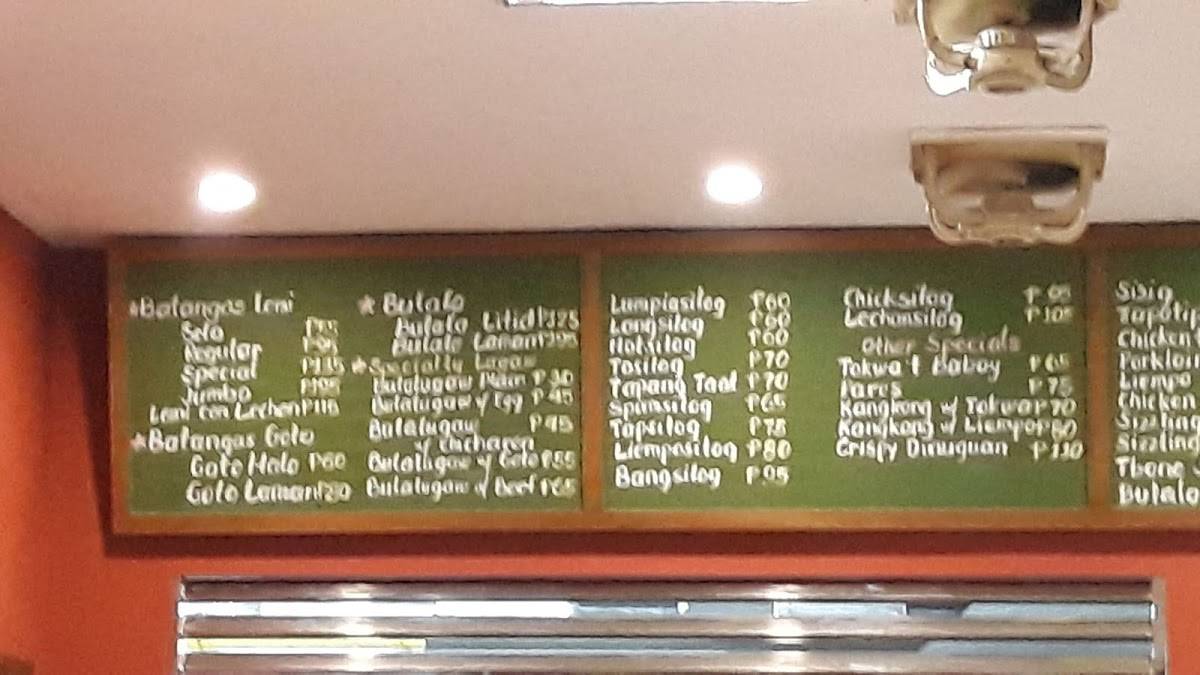 ★Batangas Lomi
Solo
Regular
Special P135
Jumbo
Lomi con Lechon P115
★Batangas Goto
Goto Halo P60
Goto Laman P80
★ Bulalo
Bulalo Litid P325
Bulalo Laman P395
★Specialty Lugaw
Bulalugaw Plain P30
Bulalugaw w/ Egg P45
Bulalugaw P45
w/ Chicharon
Bulalugaw w/ Goto P55
Bulalugaw w/ Beef P65
Lumpiasilog P60
Longsilog P60
Hotsilog P60
Tosilog P70
Tapang Taal P70
Spamsilog P65
Tapsilog P75
Liemposilog P80
Bangsilog P95
Chicksilog P95
Lechonsilog P105
Other Specials
Tokwa't Baboy P65
Pares P75
Kangkong w/ Tokwa P70
Kangkong w/ Liempo P80
Crispy Dinuguan P130
Sisig
Chicken
Liempo
Chicken
Sizzling
Tbone
Bulalo